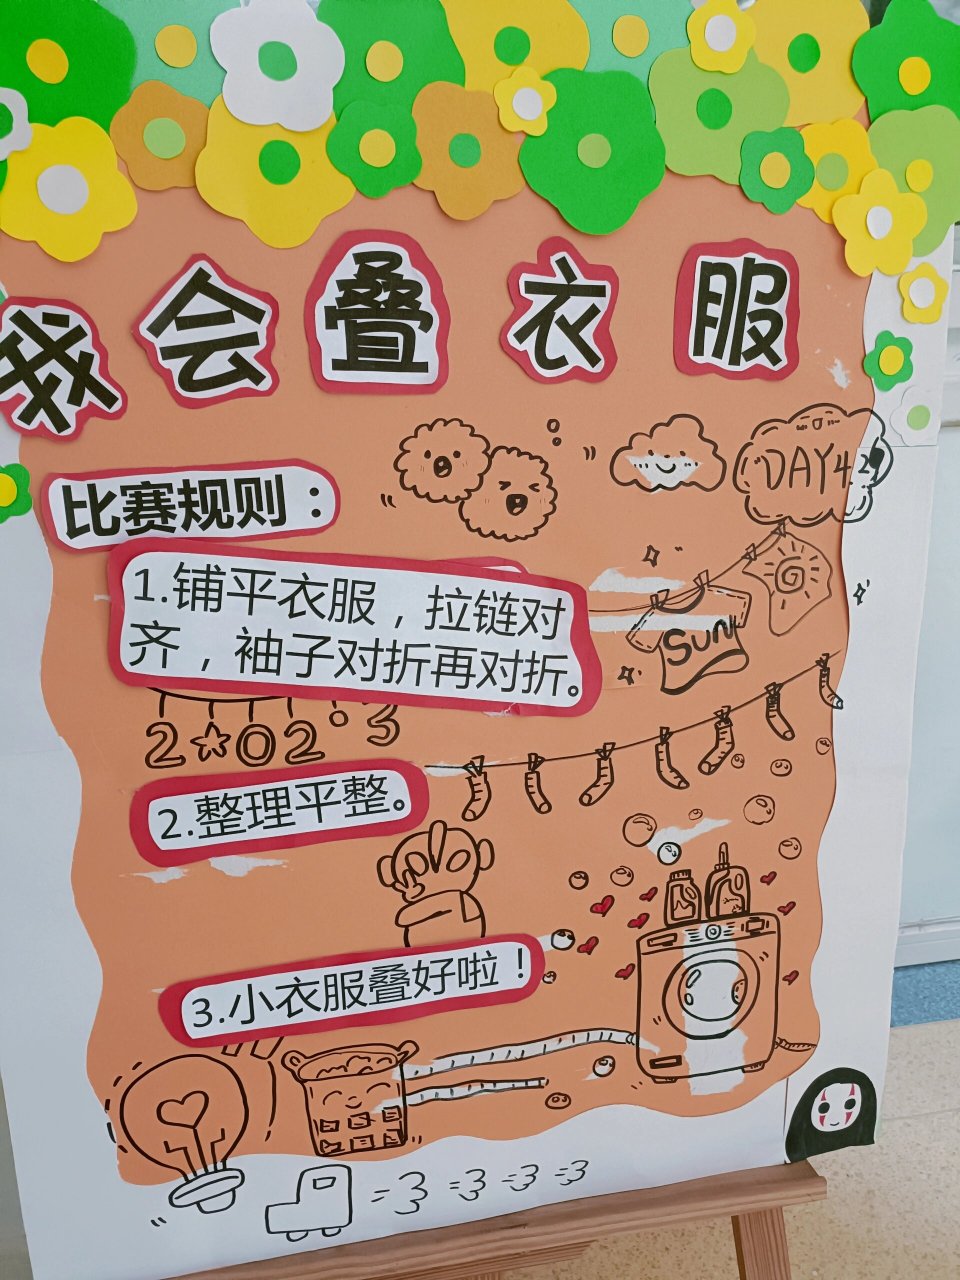 我会叠衣服
比赛规则：
DAY42
1.铺平衣服，拉链对
齐，袖子对折再对折。
Sun
2☆02·3
2.整理平整。
3.小衣服叠好啦！